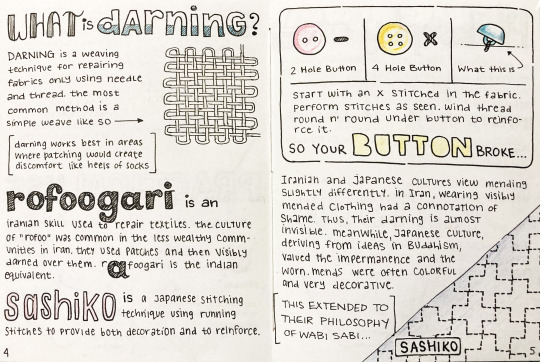 WHAT is darning?
DARNING is a weaving
technique for repairing
fabrics only using needle
and thread. the most
common method is a
simple weave like so
darning works best in areas
where patching would create
discomfort like heels of socks
rofoogari is an
iranian skill used to repair textiles. the culture
of "rofoo" was common in the less wealthy comm-
unities in iran. they used patches and then visibly
darned over them. rafoogari is the indian
equivalent.
sashiko is a Japanese stitching
technique using running
stitches to provide both decoration and to reinforce.
4
2 Hole Button
4 Hole Button
What this is
START WITH AN X STITCHED in the fabric.
Perform stitches as seen. wind thread
round n' round under button to reinfo-
rce it.
SO YOUR BUTTON BROKE...
Iranian and Japanese cultures view mending
slightly differently. in Iran, wearing visibly
mended clothing had a connotation of
shame. Thus, their darning is almost
invisible. meanwhile, Japanese culture,
deriving from ideas in Buddhism,
valued the impermanence and the
worn. mends were often colorful
and very decorative.
THIS EXTENDED TO
THEIR PHILOSOPHY
OF WABI SABI...
SASHIKO
5